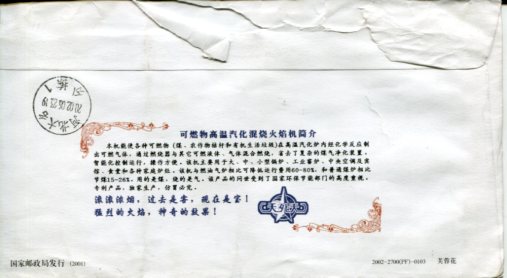 可燃物高温汽化混烧火焰机简介
本机能使各种可燃物（煤、农作物秸秆和有机生活垃圾）在高温汽化炉内经化学反应制
出可燃气体，通过燃烧器与其它可燃液体、气体混合燃烧，省去了复杂的煤气净化装置，
智能化控制运行，操作方便。该机主要用于大、中、小型锅炉、工业窑炉、中央空调及宾
馆、食堂和各种家庭炉灶。该机与燃油气炉相比可降低运行费用60-80%，和普通煤炉相比
节煤15-26%。用的是煤，烧的是气。该产品的问世受到了国家环保节能部门的高度重视，
专利产品，独家生产，仿冒必究。
滚滚浓烟，过去是害，现在是宝！
猛烈的火焰，神奇的效果！
国家邮政局发行 (2001)
2002-2700(PF)-0103 芙蓉花